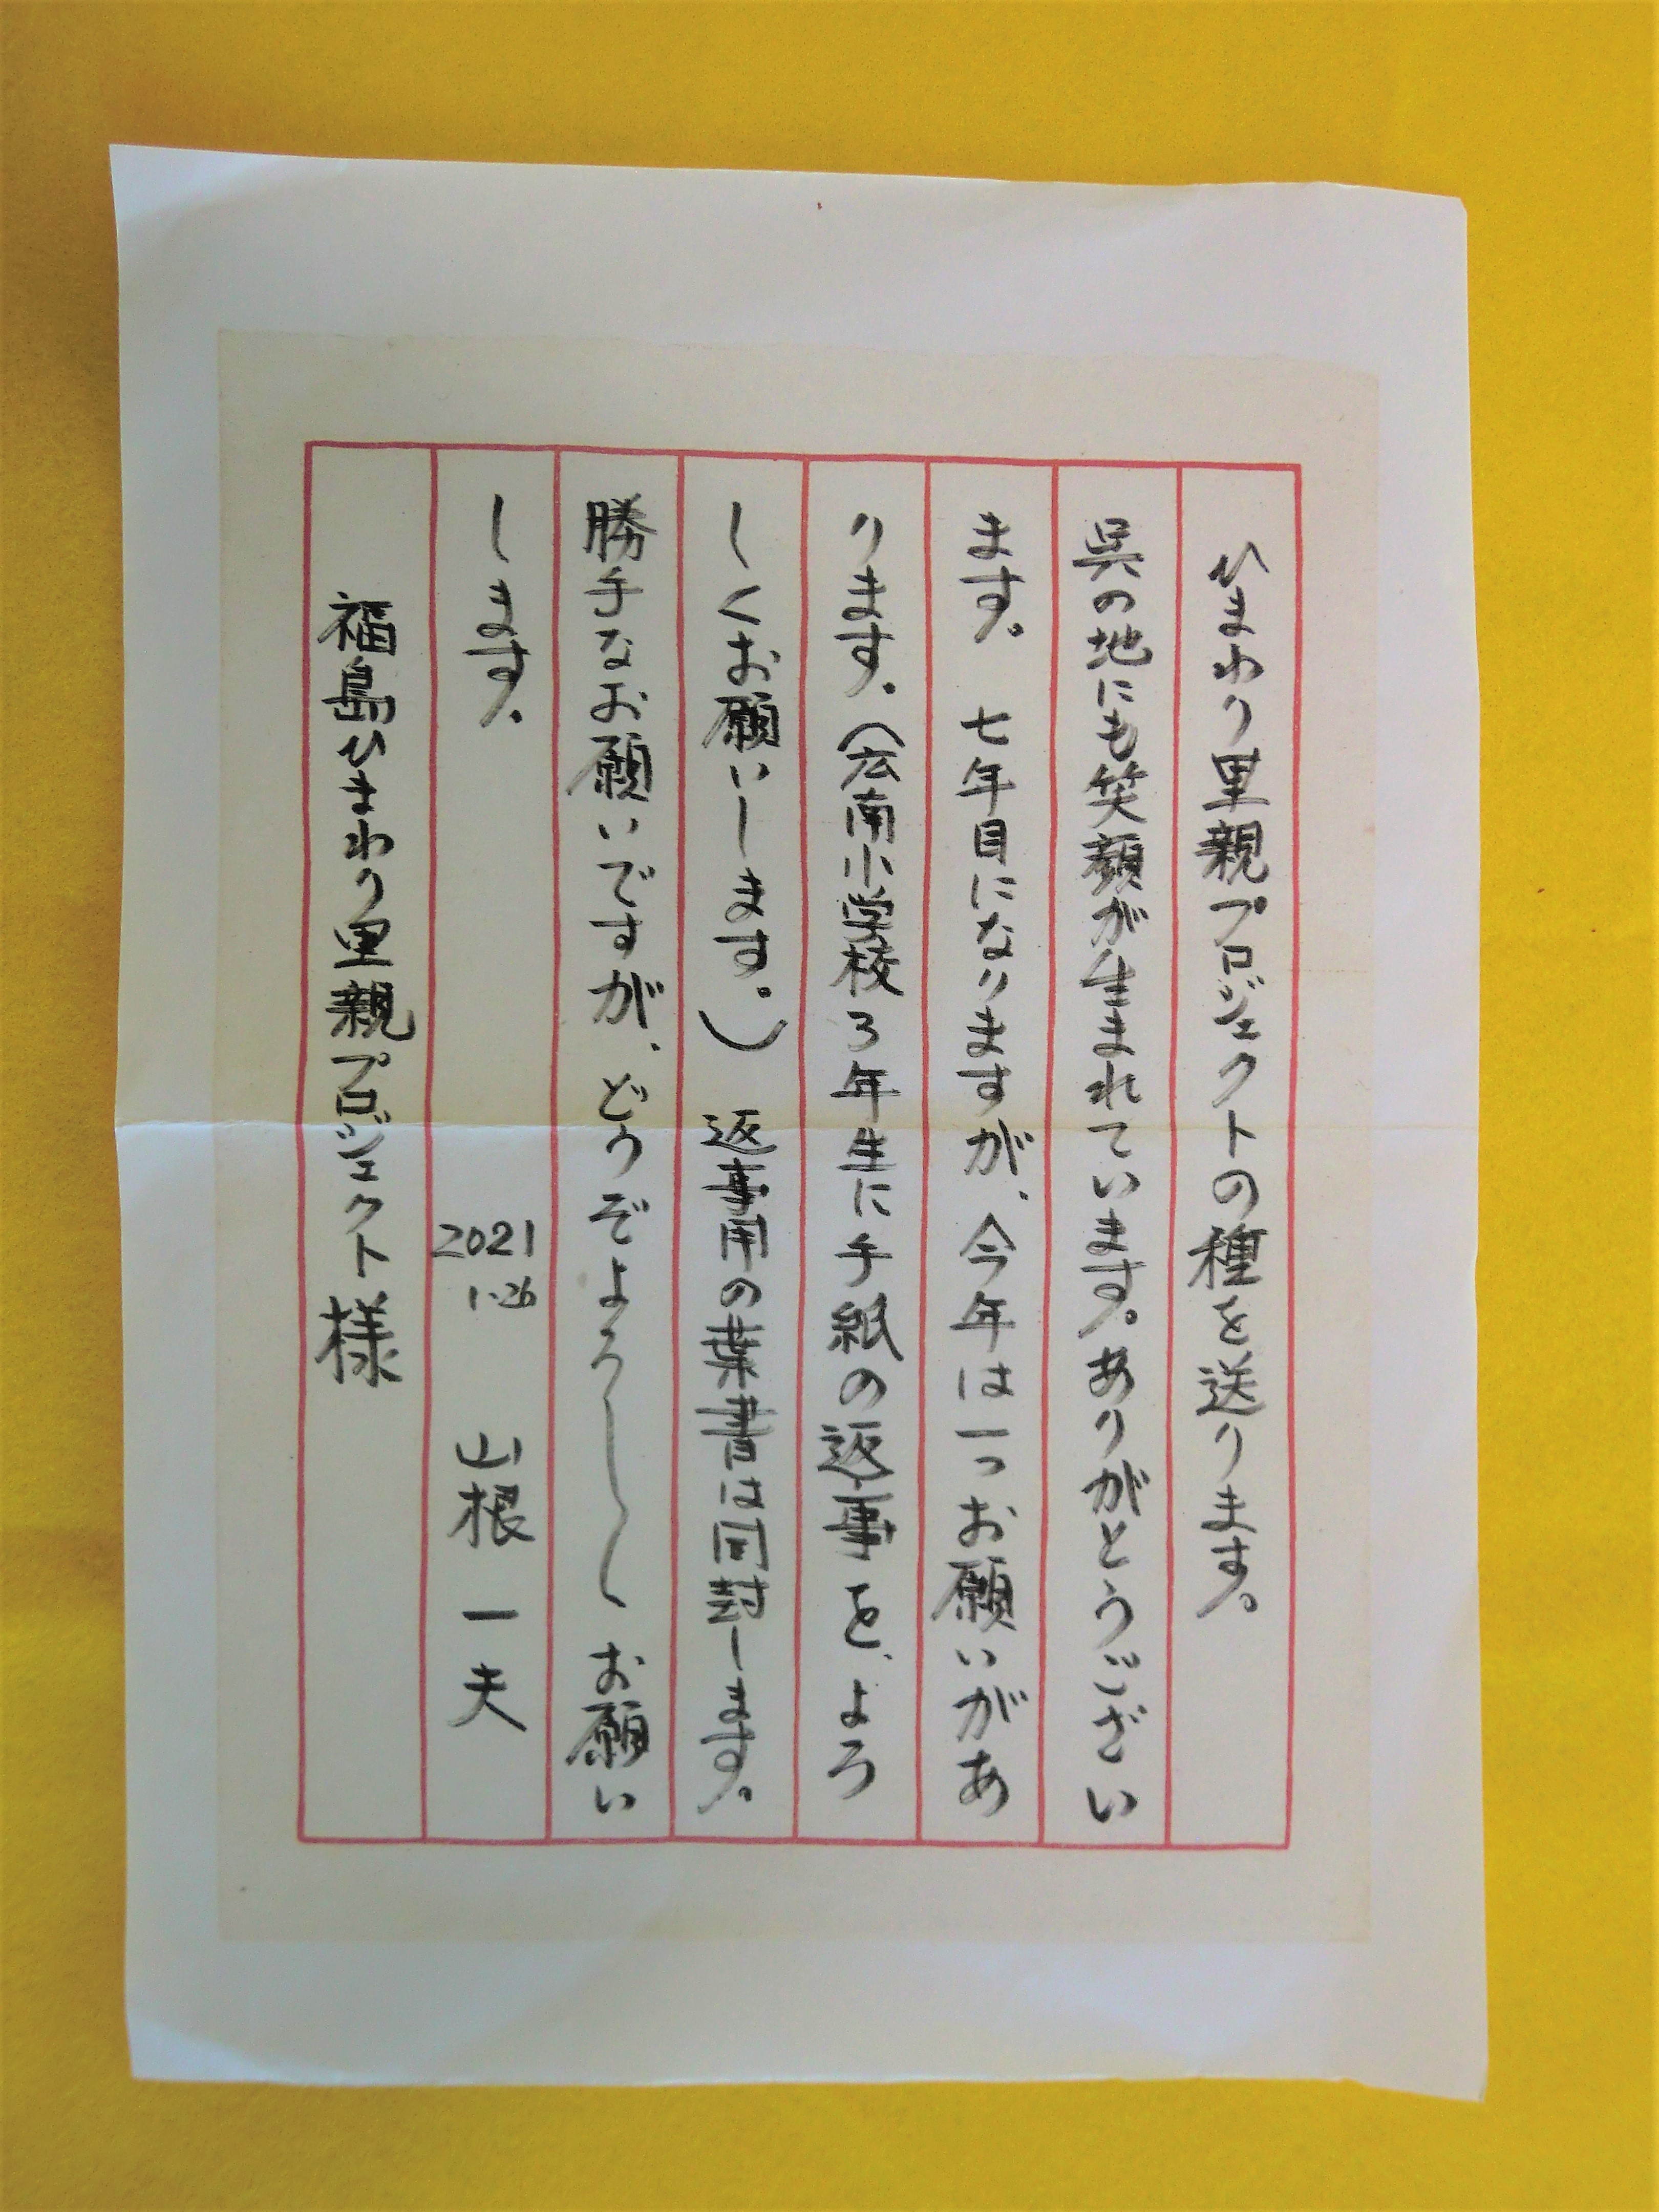 ひまわり里親プロジェクトの種を送ります。
呉の地にも笑顔が生まれています。ありがとうござい
ます。 七年目になりますが、今年は一つお願いがあ
ります。(広南小学校3年生に手紙の返事を、よろ
しくお願いします。) 返事用の葉書は同封します。
勝手なお願いですが、どうぞよろしくお願い
します。
2021
1.26
山根一夫
福島ひまわり里親プロジェクト様